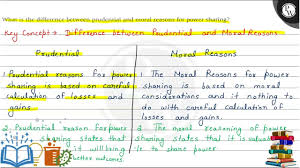 What is the difference between prudential and moral reasons for power sharing?
Key Concept → Difference between Prudential and Moral Reasons
Prudential
Moral Reasons
1 Prudential reasons for power
sharing is based on careful
calculation of losses and
gains
1 The Moral Reasons for power
sharing is based on moral
considerations and it nothing to
do with careful calculation of
losses and gains.
2 Prudential reason for power
sharing states that
it will bring
better outcomes.
2 The moral reasoning of power
sharing states that it is valuable
to share power